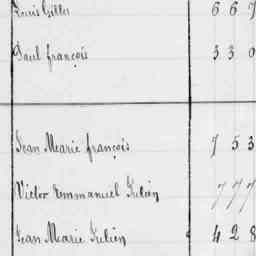 Louis Gilles 6 6 7
Paul françois 3 3 0
Jean Marie françois 7 5 3
Victor Emmanuel Julien 7 7 7
Jean Marie Julien 4 2 8